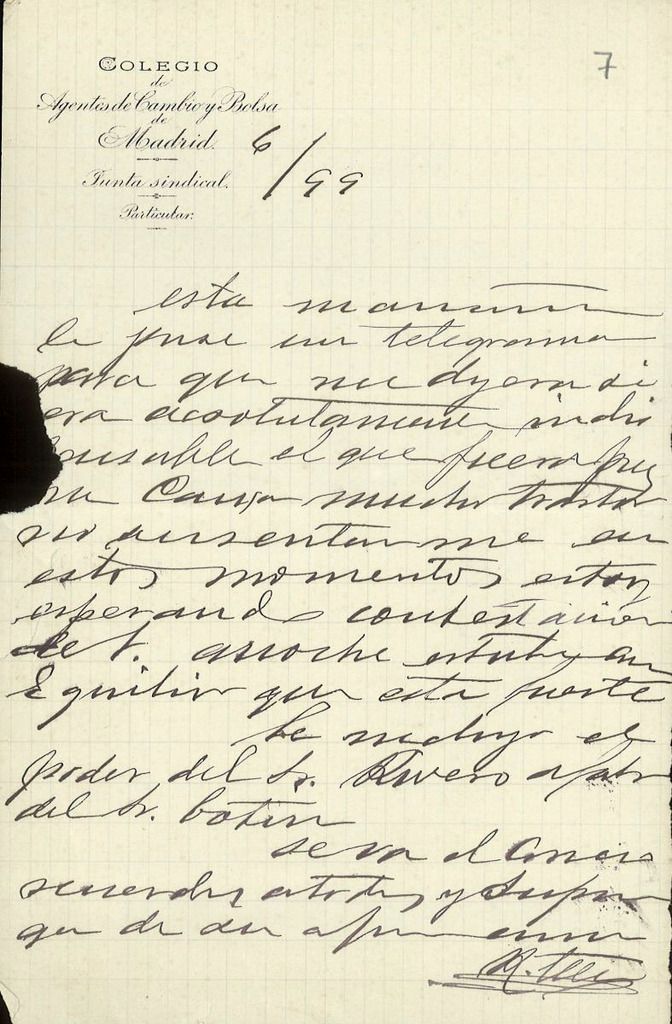 7
COLEGIO
de
Agentes de Cambio y Bolsa
de
Madrid.
Junta sindical.
Particular.
6/99
esta manana
le puse un telegrama
para que me dijera si
era absolutamente indis
pensable el que fuera pues
me causa mucho trastorno
no ausentarme en
estos momentos estoy
esperando contestacion
de V. anoche estube con
que esta fuerte
le incluyo el
poder del Sr. Rivero a fabor
del Sr. Botin
se va el Correo
recuerdos a todos y
que de su afmo
R.